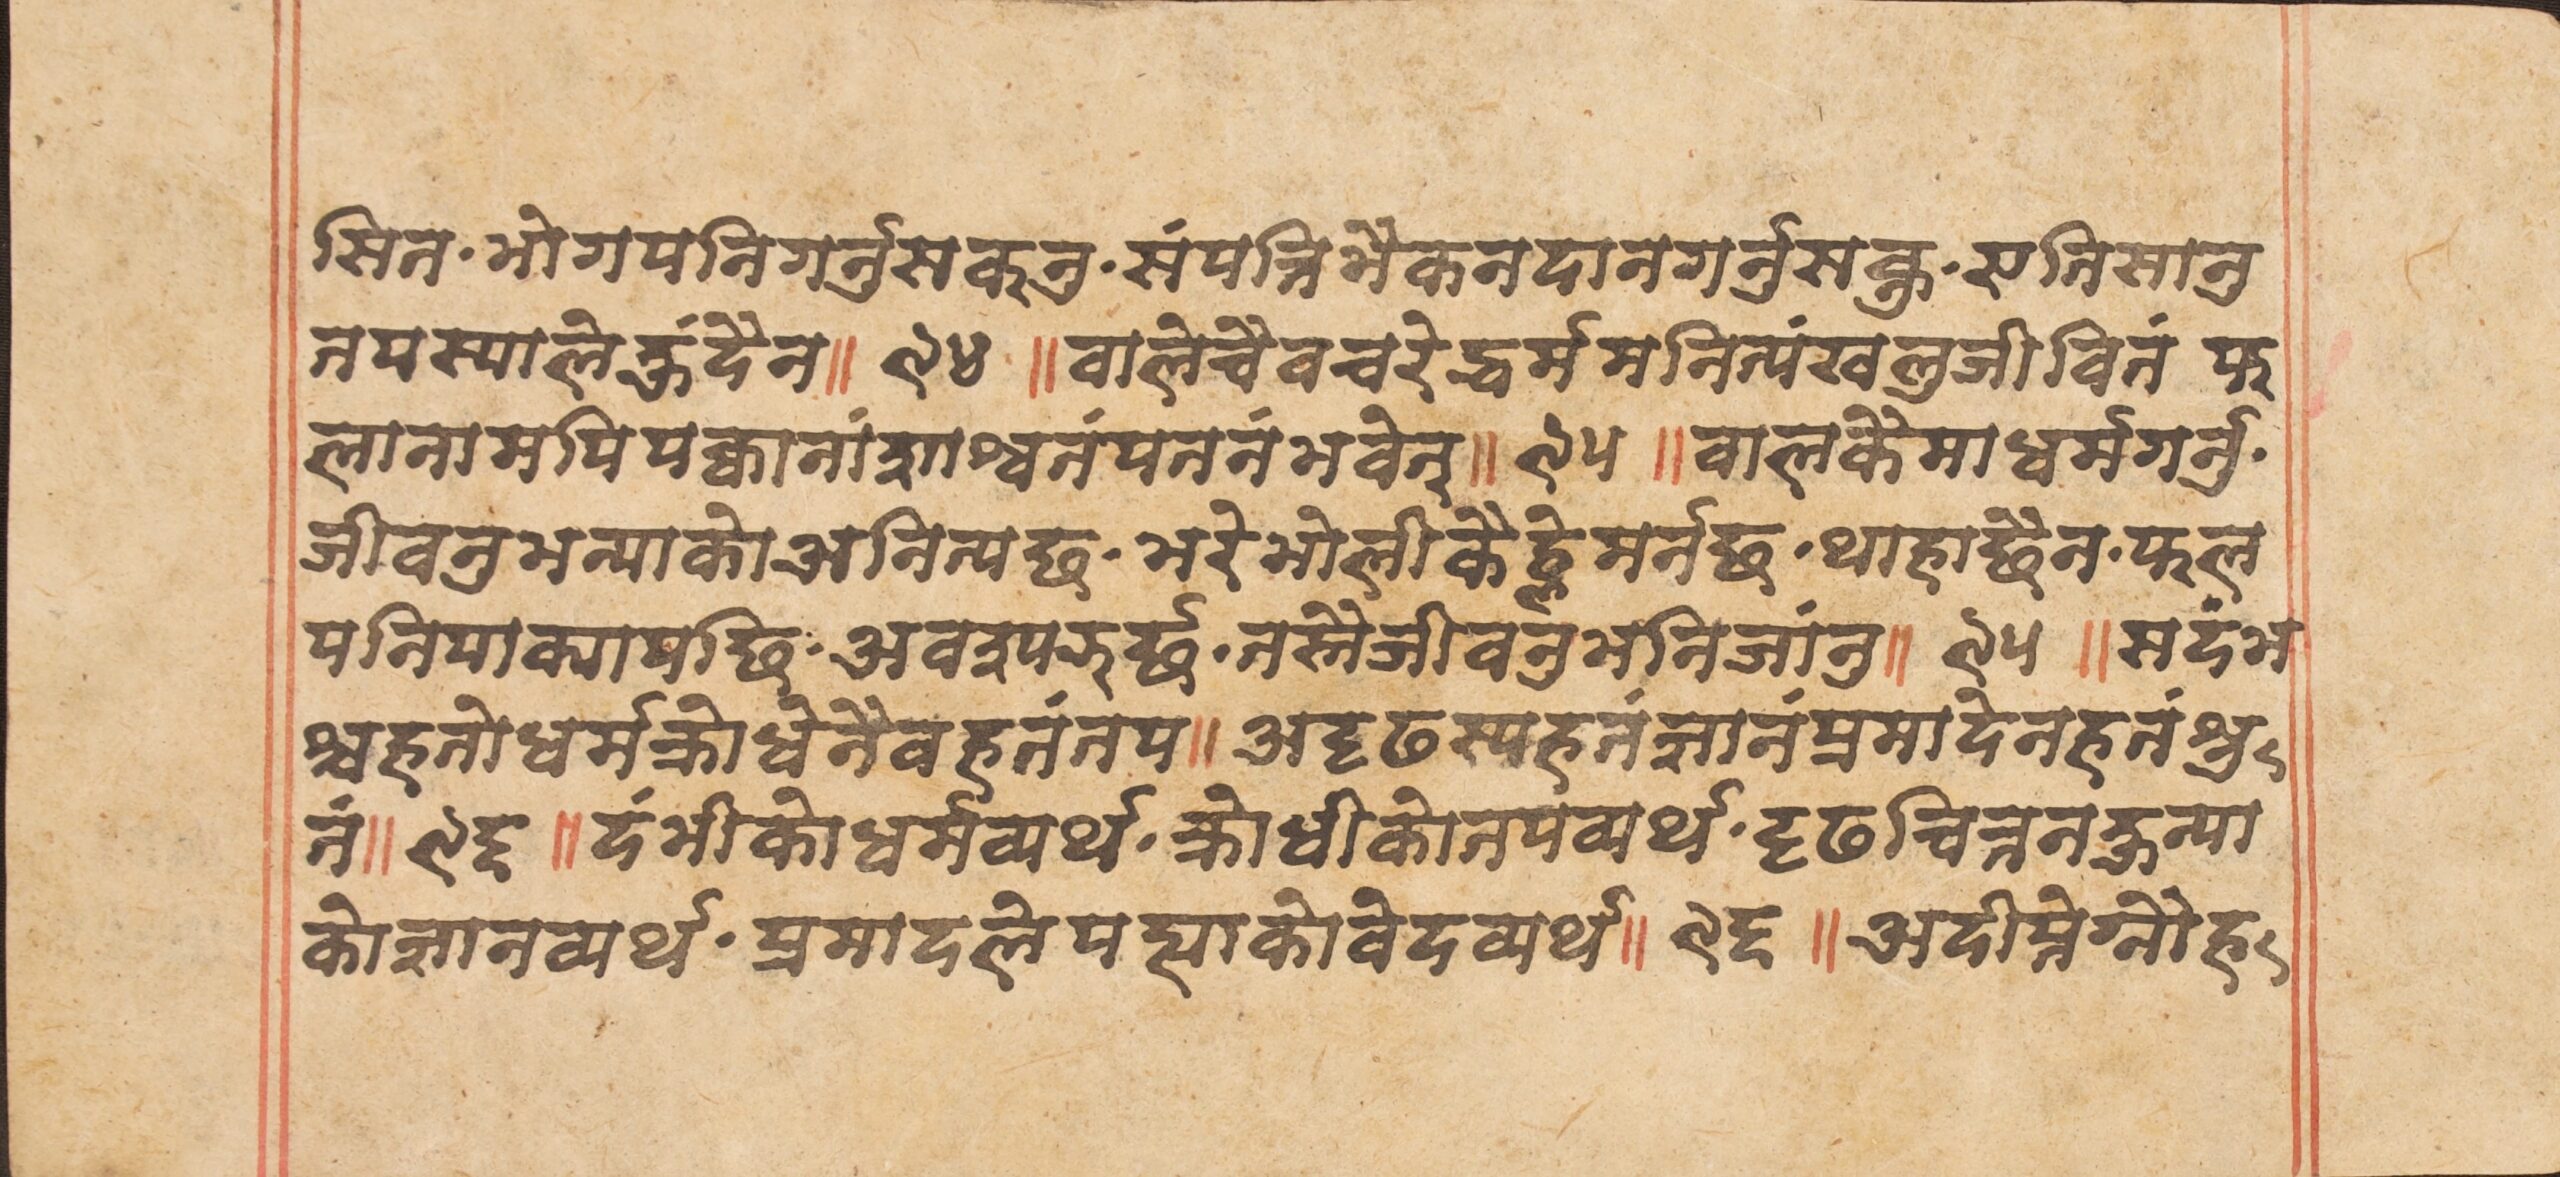 सित·भोगपनिगर्नुसक्नु·संपत्तिभैकनदानगर्नुसक्नु·एतिसानु
तपस्याले हुंदैन॥ ९४ ॥वालेचैवचरेद्धर्ममनित्यंखलुजीवितं फ
लानामपिपक्वानांशाश्वतंपतनंभवेत्॥ ९५ ॥वालकैमाधर्मगर्नु·
जीवनुभन्याकोअनित्यछ·भरेभोलीकैह्लेमर्नछ·थाहाछैन·फल
पनिपाक्यापछि·अवश्यझर्छ·तस्तैजीवनुभनिजांनु॥ ९५ ॥सदंभ
श्चहतोधर्मक्रोधेनैवहतंतप॥अदृढस्यहतंज्ञानंप्रमादेनहतंश्रु
तं॥ ९६ ॥दंभीकोधर्मव्यर्थ·क्रोधीकोतपव्यर्थ·दृढचित्तनहुन्या
कोज्ञानव्यर्थ·प्रमादलेपढ्याकोवेदव्यर्थ॥ ९६ ॥अदीप्तेग्नौह